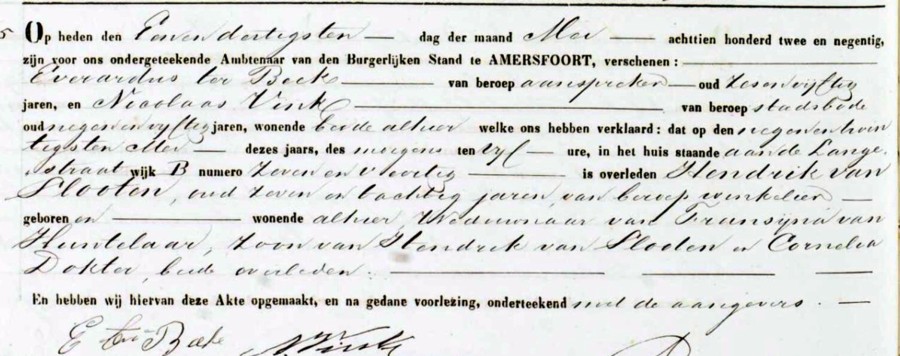 Op heden den Een en dertigsten dag der maand Mei achttien honderd twee en negentig,
zijn voor ons ondergeteekende Ambtenaar van den Burgerlijken Stand te AMERSFOORT, verschenen :
Everardus ter Beek van beroep aanspreker oud zes en vijftig
jaren, en Nicolaas Vink van beroep stadsbode
oud negen en vijftig jaren, wonende beide alhier welke ons hebben verklaard : dat op den negen en twin
tigsten Mei dezes jaars, des morgens ten vijf ure, in het huis staande aan de Lange
straat wijk B numero zeven en veertig is overleden Hendrik van
Slooten, oud zeven en tachtig jaren, van beroep winkelier
geboren en wonende alhier, Weduwnaar van Fransijna van
Huntelaar, zoon van Hendrik van Slooten en Cornelia
Dokter, beide overleden.
En hebben wij hiervan deze Akte opgemaakt, en na gedane voorlezing, onderteekend met de aangevers.
E ter Beek N Vink